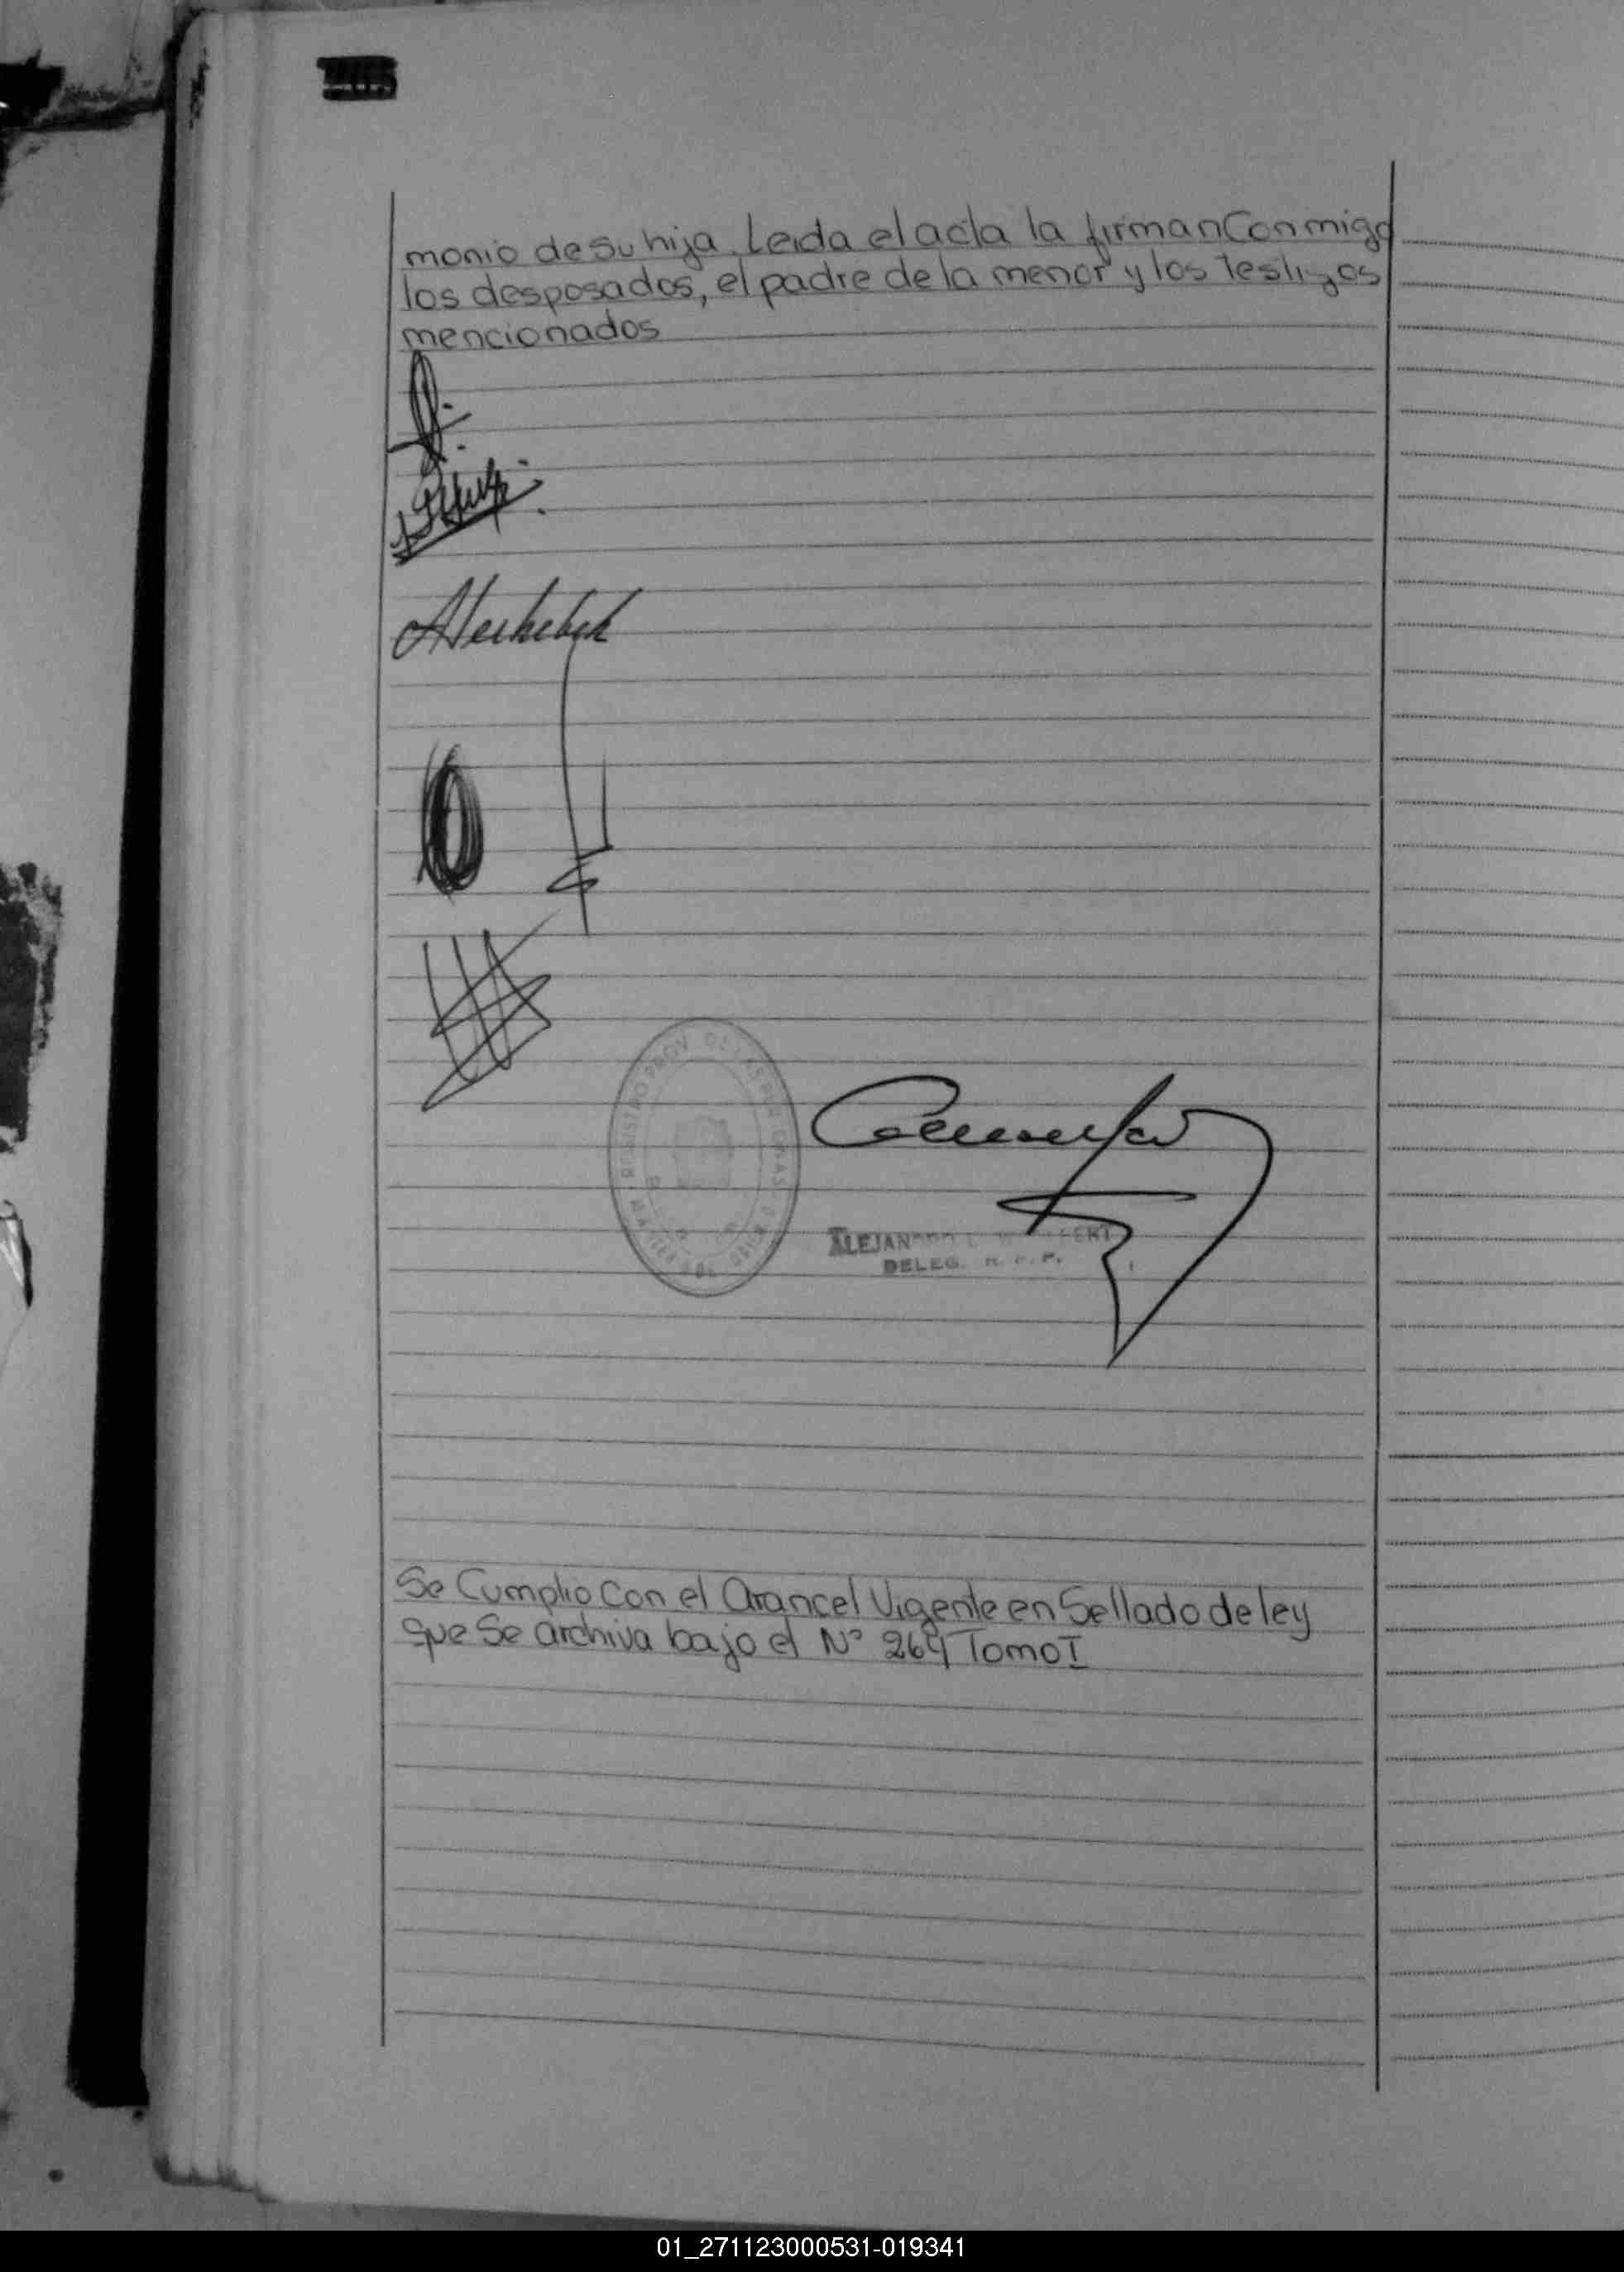 205
monio de su hija. Leida el acta la firman Conmigo
los desposados, el padre de la menor y los testigos
mencionados
REGISTRO PROV. DE LAS PERSONAS
ALEJAN
DELEG. R. P. P.
Se Cumplio Con el Arancel Vigente en Sellado de ley
que Se archiva bajo el Nº 264 Tomo I
01_271123000531-019341